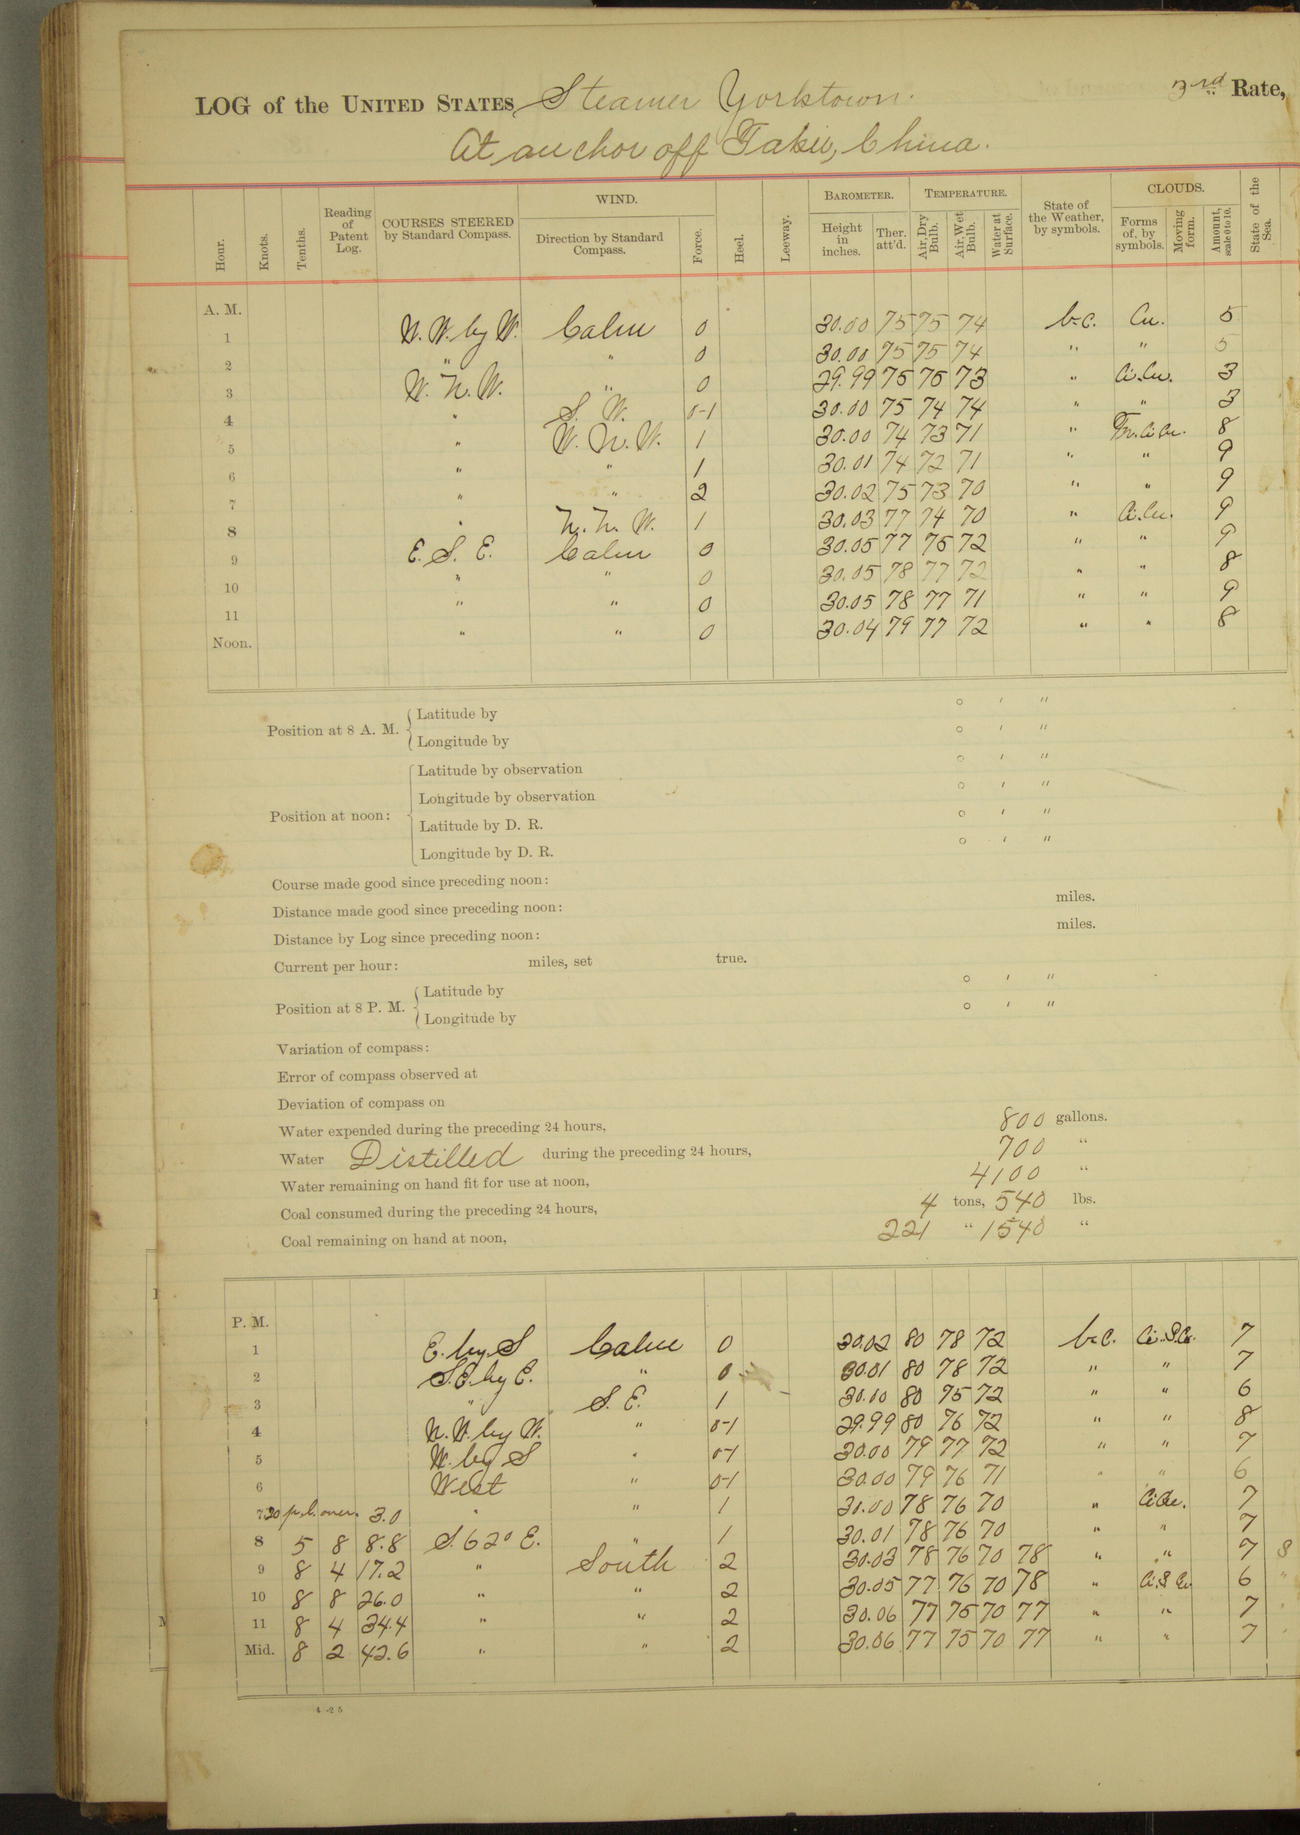 LOG of the UNITED STATES Steamer Yorktown. 3rd Rate,
At anchor off Taku, China.
Hour. Knots. Tenths. Reading of Patent Log. COURSES STEERED by Standard Compass. WIND. Direction by Standard Compass. Force. Heel. Leeway. BAROMETER. Height in inches. Ther. att'd. TEMPERATURE. Air, Dry Bulb. Air, Wet Bulb. Water at Surface. State of the Weather, by symbols. CLOUDS. Forms of, by symbols. Moving form. Amount, scale 0 to 10. State of the Sea.
A. M.
1 N. W. by W. Calm 0 30.00 75 75 74 b.c. Cu. 5
2 " " 0 30.00 75 75 74 " " 5
3 W. N. W. " 0 29.99 75 75 73 " Ci. Cu. 3
4 " S. W. 0-1 30.00 75 74 74 " " 3
5 " W. N. W. 1 30.00 74 73 71 " Ci Cu. 8
6 " " 1 30.01 74 72 71 " " 9
7 " " 2 30.02 75 73 70 " " 9
8 " N. N. W. 1 30.03 77 74 70 " Ci. Cu. 9
9 E. S. E. Calm 0 30.05 77 75 72 " " 9
10 " " 0 30.05 78 77 72 " " 8
11 " " 0 30.05 78 77 71 " " 9
Noon. " " 0 30.04 79 77 72 " " 8
Position at 8 A. M. { Latitude by ° ′ ″
Longitude by ° ′ ″
Position at noon: { Latitude by observation ° ′ ″
Longitude by observation ° ′ ″
Latitude by D. R. ° ′ ″
Longitude by D. R. ° ′ ″
Course made good since preceding noon:
Distance made good since preceding noon: miles.
Distance by Log since preceding noon: miles.
Current per hour: miles, set true.
Position at 8 P. M. { Latitude by ° ′ ″
Longitude by ° ′ ″
Variation of compass:
Error of compass observed at
Deviation of compass on
Water expended during the preceding 24 hours, 800 gallons.
Water Distilled during the preceding 24 hours, 700 "
Water remaining on hand fit for use at noon, 4100 "
Coal consumed during the preceding 24 hours, 4 tons, 540 lbs.
Coal remaining on hand at noon, 221 " 1540 "
P. M.
1 E. by S Calm 0 30.02 80 78 72 b.c. Ci. S. Cu. 7
2 S. E. by E. " 0 30.01 80 78 72 " " 7
3 " S. E. 1 30.00 80 75 72 " " 6
4 N. W. by W. " 0-1 29.99 80 76 72 " " 8
5 W. by S " 0-1 30.00 79 77 72 " " 7
6 West " 0-1 30.00 79 76 71 " " 6
7.30 p.l. over. 3.0 " " 1 30.00 78 76 70 " Ci Cu. 7
8 5 8 8.8 S. 62° E. " 1 30.01 78 76 70 " " 7
9 8 4 17.2 " South 2 30.03 78 76 70 78 " " 7 S
10 8 8 26.0 " " 2 30.05 77 76 70 78 " Ci. S Cu 6 "
11 8 4 34.4 " " 2 30.06 77 75 70 77 " " 7 "
Mid. 8 2 42.6 " " 2 30.06 77 75 70 77 " " 7 "
4-25